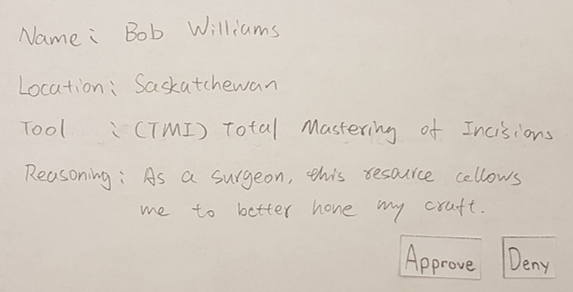 Name: Bob Williams
Location: Saskatchewan
Tool : (TMI) Total Mastering of Incisions
Reasoning: As a surgeon, this resource allows
me to better hone my craft.
Approve Deny